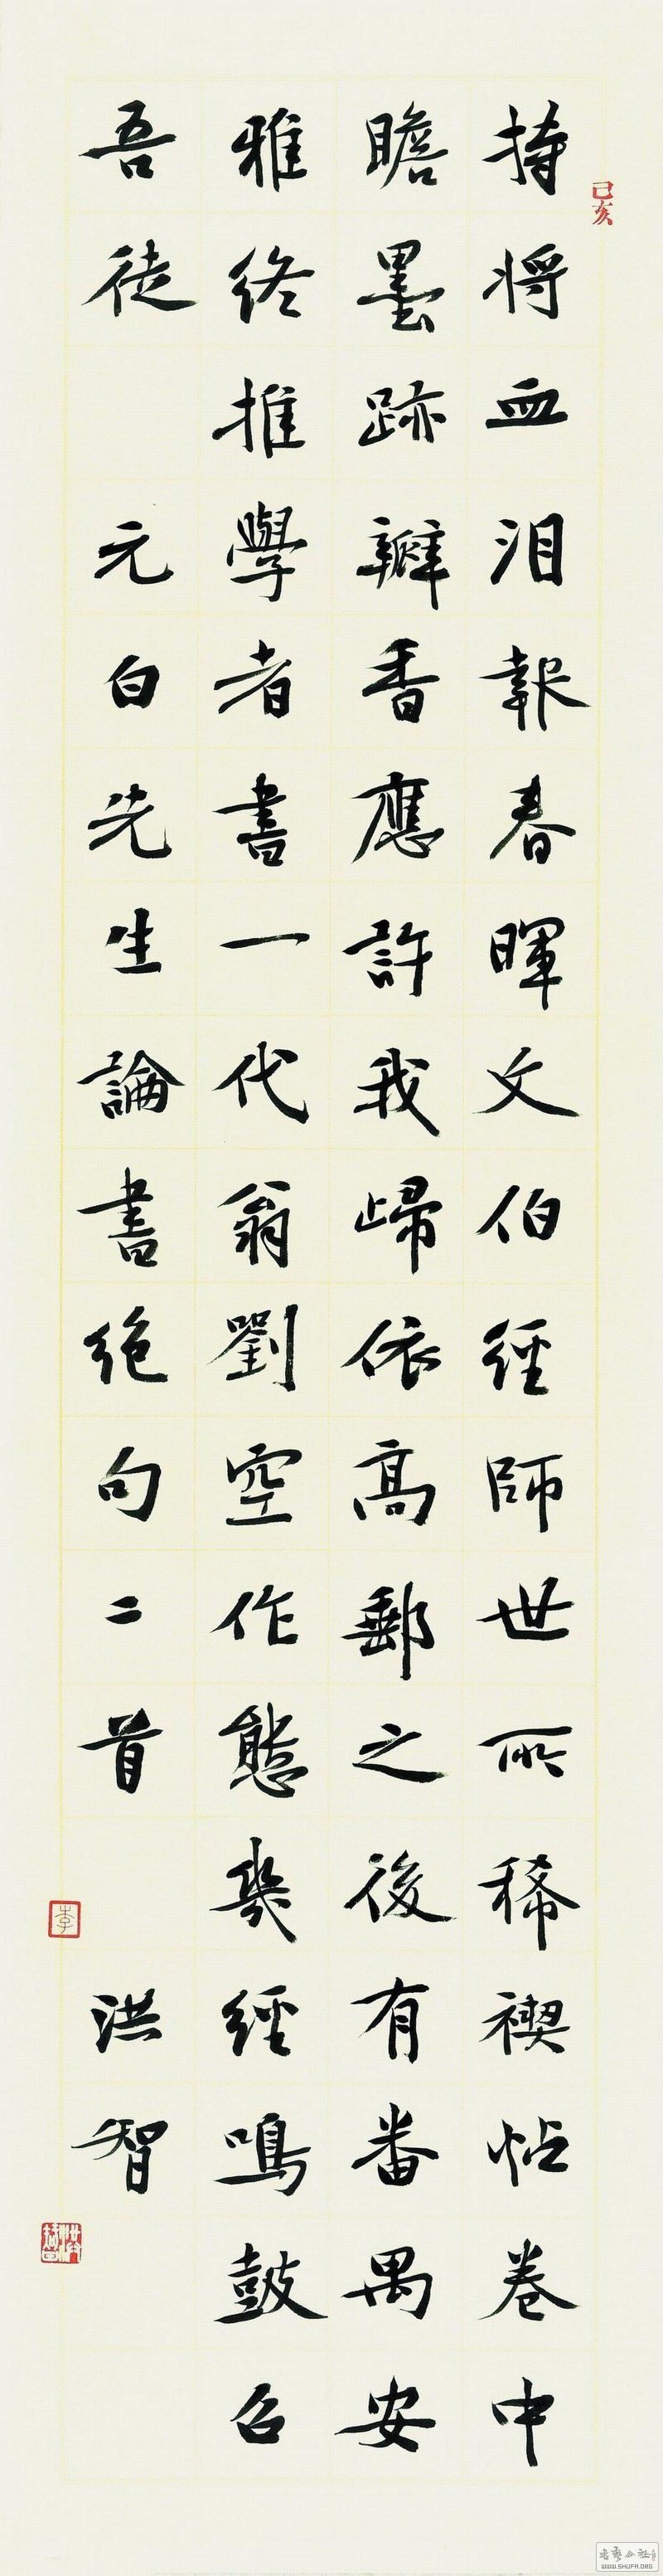 己亥
持將血泪報春暉文伯經師世所稀禊帖卷中
瞻墨跡瓣香應許我歸依高郵之後有番禺安
雅終推學者書一代翁劉空作態義經鳴鼓召
吾徒 元白先生論書絕句二首 洪智
李
WWW.SHUFA.ORG